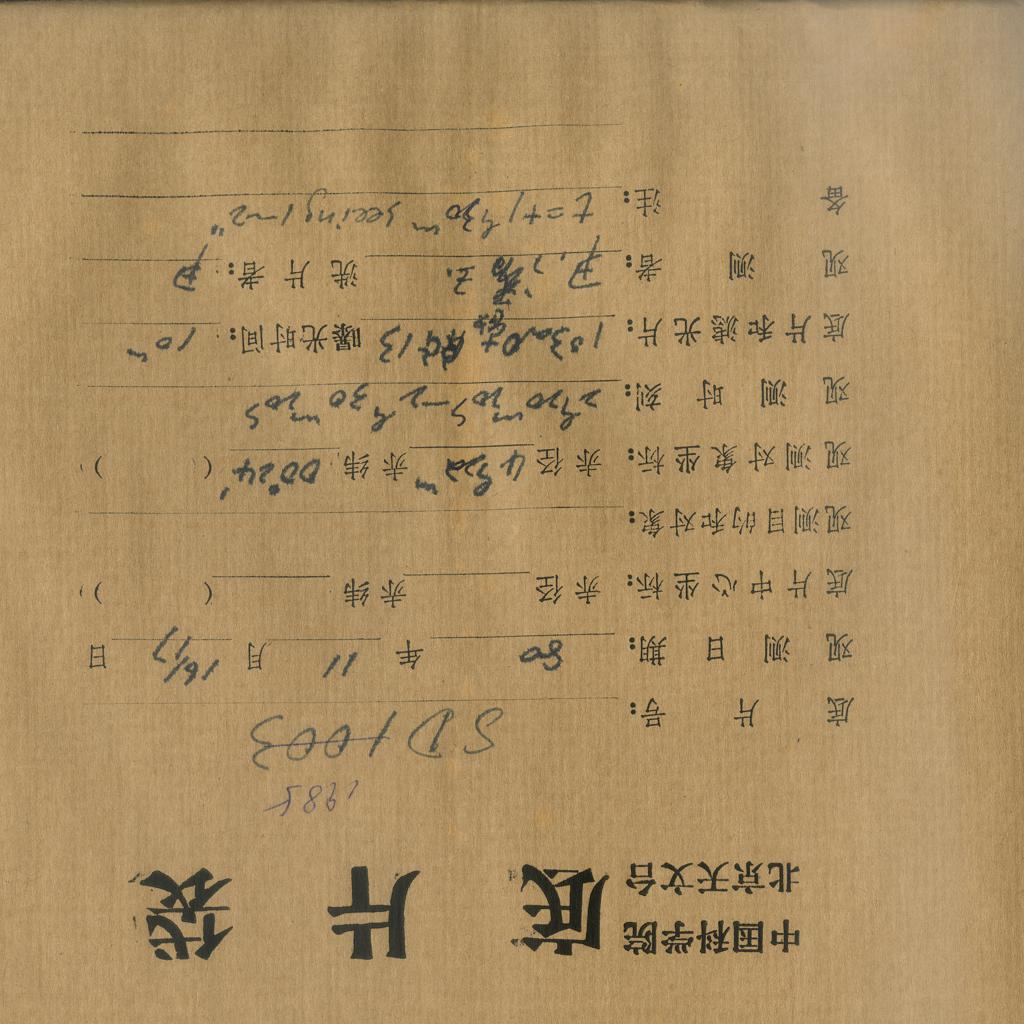 中国科学院
北京天文台
底片袋
1985
底片号: SD1003
观测日期: 80 年 11 月 16/17 日
底片中心坐标: 赤径 赤纬 ( )
观测目的和对象:
观测对象坐标: 赤径 4h22m 赤纬 00°24' ( )
观测时刻: 2h20m20s—2h30m20s
底片和滤光片: 103aO+ 13 曝光时间: 10m
观测者: 洗片者: 尹
备注: t=+1h30m seeing 1—2"